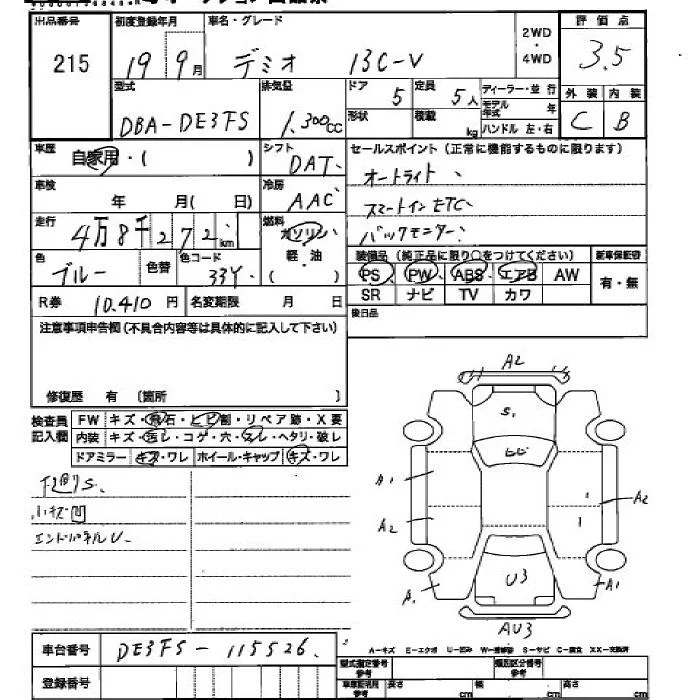 出品番号
215
初度登録年月
19 9月
車名・グレード
デミオ 13C-V
2WD
・
4WD
評価点
3.5
外装 内装
C B
型式
DBA-DE3FS
排気量
1,300cc
ドア
5
定員
5人
形状
積載
kg
ディーラー・並行
モデル年式 年
ハンドル 左・右
車歴
自家用・( )
シフト
DAT
セールスポイント(正常に機能するものに限ります)
オートライト
スマートイン ETC
バックモニター
車検
年 月( 日)
冷房
AAC
走行
4万8千272km
燃料
ガソリン
軽・油
( )
色
ブルー
色替
色コード
33Y
装備品(純正品に限り○をつけてください)
PS PW ABS エアB AW
SR ナビ TV カワ
新車保証書
有・無
R券 10,410円
名変期限 月 日
後日品
注意事項申告欄(不具合内容等は具体的に記入して下さい)
修復歴 有 〔箇所 〕
検査員
記入欄
FW キズ・飛石・ヒビ割・リペア跡・X要
内装 キズ・汚レ・コゲ・穴・スレ・ヘタリ・破レ
ドアミラー キズ・ワレ ホイール・キャップ キズ・ワレ
小キズ凹
エンドパネルU
A2
S1
ヒビ
A1
A2
A2
U3
A1
AU3
A-キズ E-エクボ U-凹み W-補修跡 S-サビ C-腐食 XX-交換済
車台番号
DE3FS-115526
登録番号
型式指定番号
参考
類別区分番号
参考
車庫証明用
参考
長さ cm 幅 cm 高さ cm